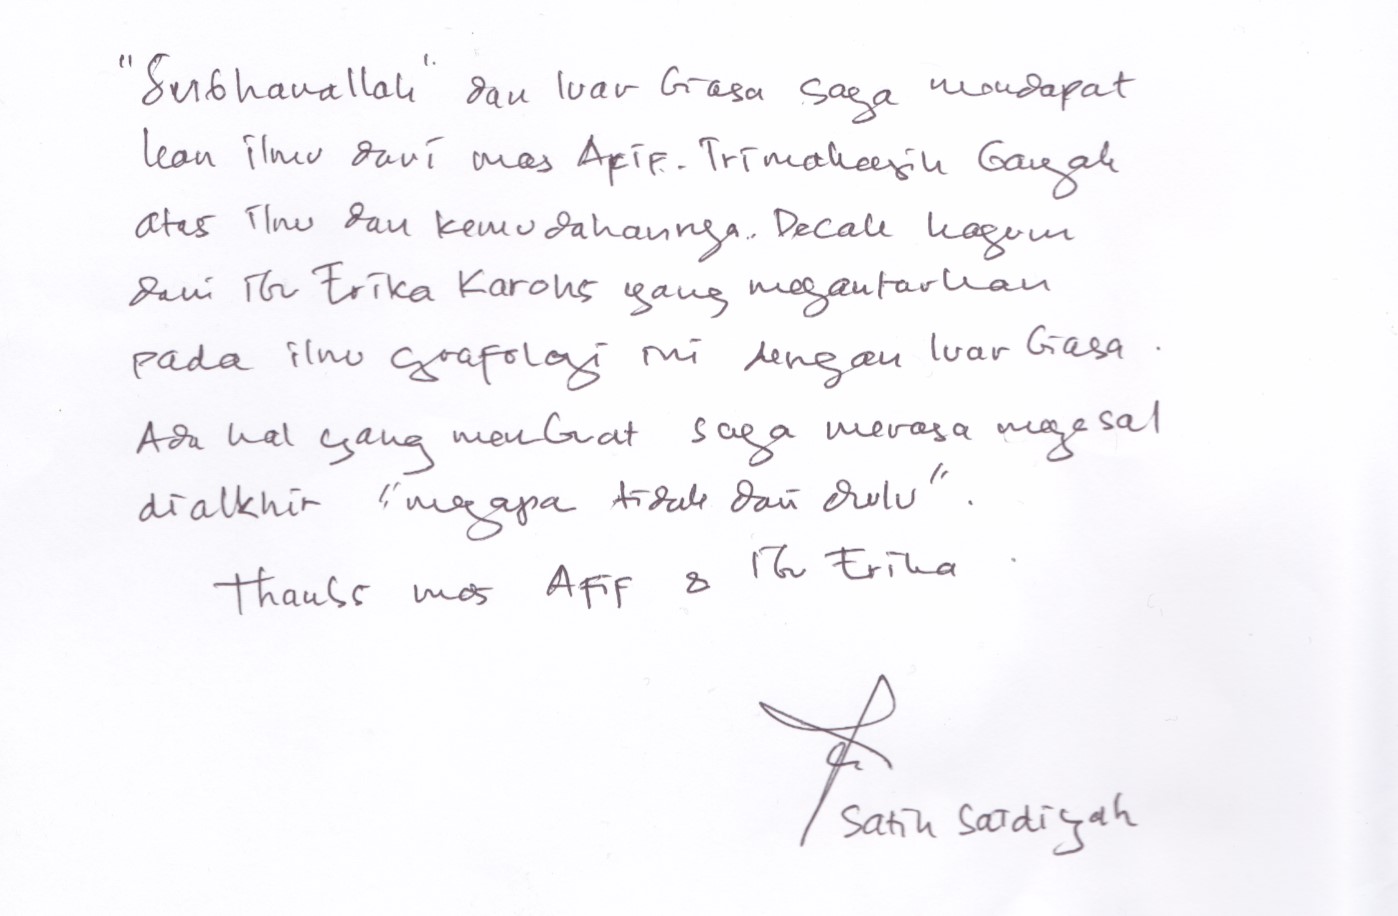 "Subhanallah" dan luar biasa saya mendapat
kan ilmu dari mas Afif. Trimakasih banyak
atas ilmu dan kemudahannya. Decak kagum
dari ibu Erika Karohs yang megantarkan
pada ilmu grafologi ini dengan luar biasa.
Ada hal yang membuat saya merasa meyesal
dialkhir "megapa tidak dari dulu".
Thanks mas Afif & Ibu Erika
Satih Saidiyah